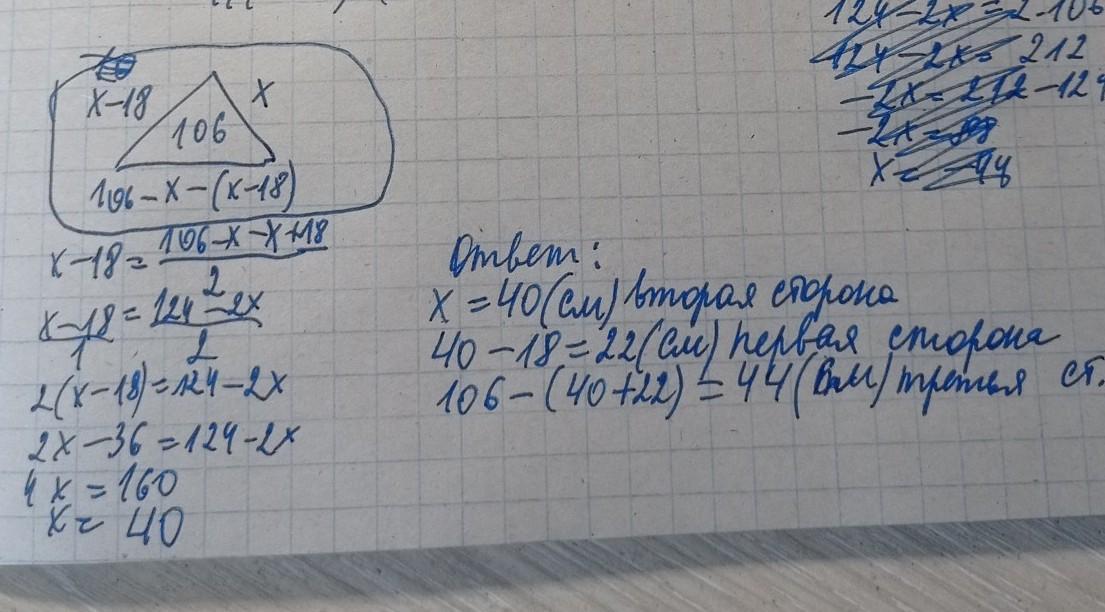 x-18
x
106
106-x-(x-18)
x-18= 106-x-x+18 / 2
x-18 / 1 = 124-2x / 2
2(x-18)=124-2x
2x-36=124-2x
4x=160
x= 40
124-2x=2·106
124-2x= 212
-2x=212-124
-2x=88
x= -44
Ответ:
x=40(см) вторая сторона
40-18=22(см) первая сторона
106-(40+22)=44(см) третья ст.